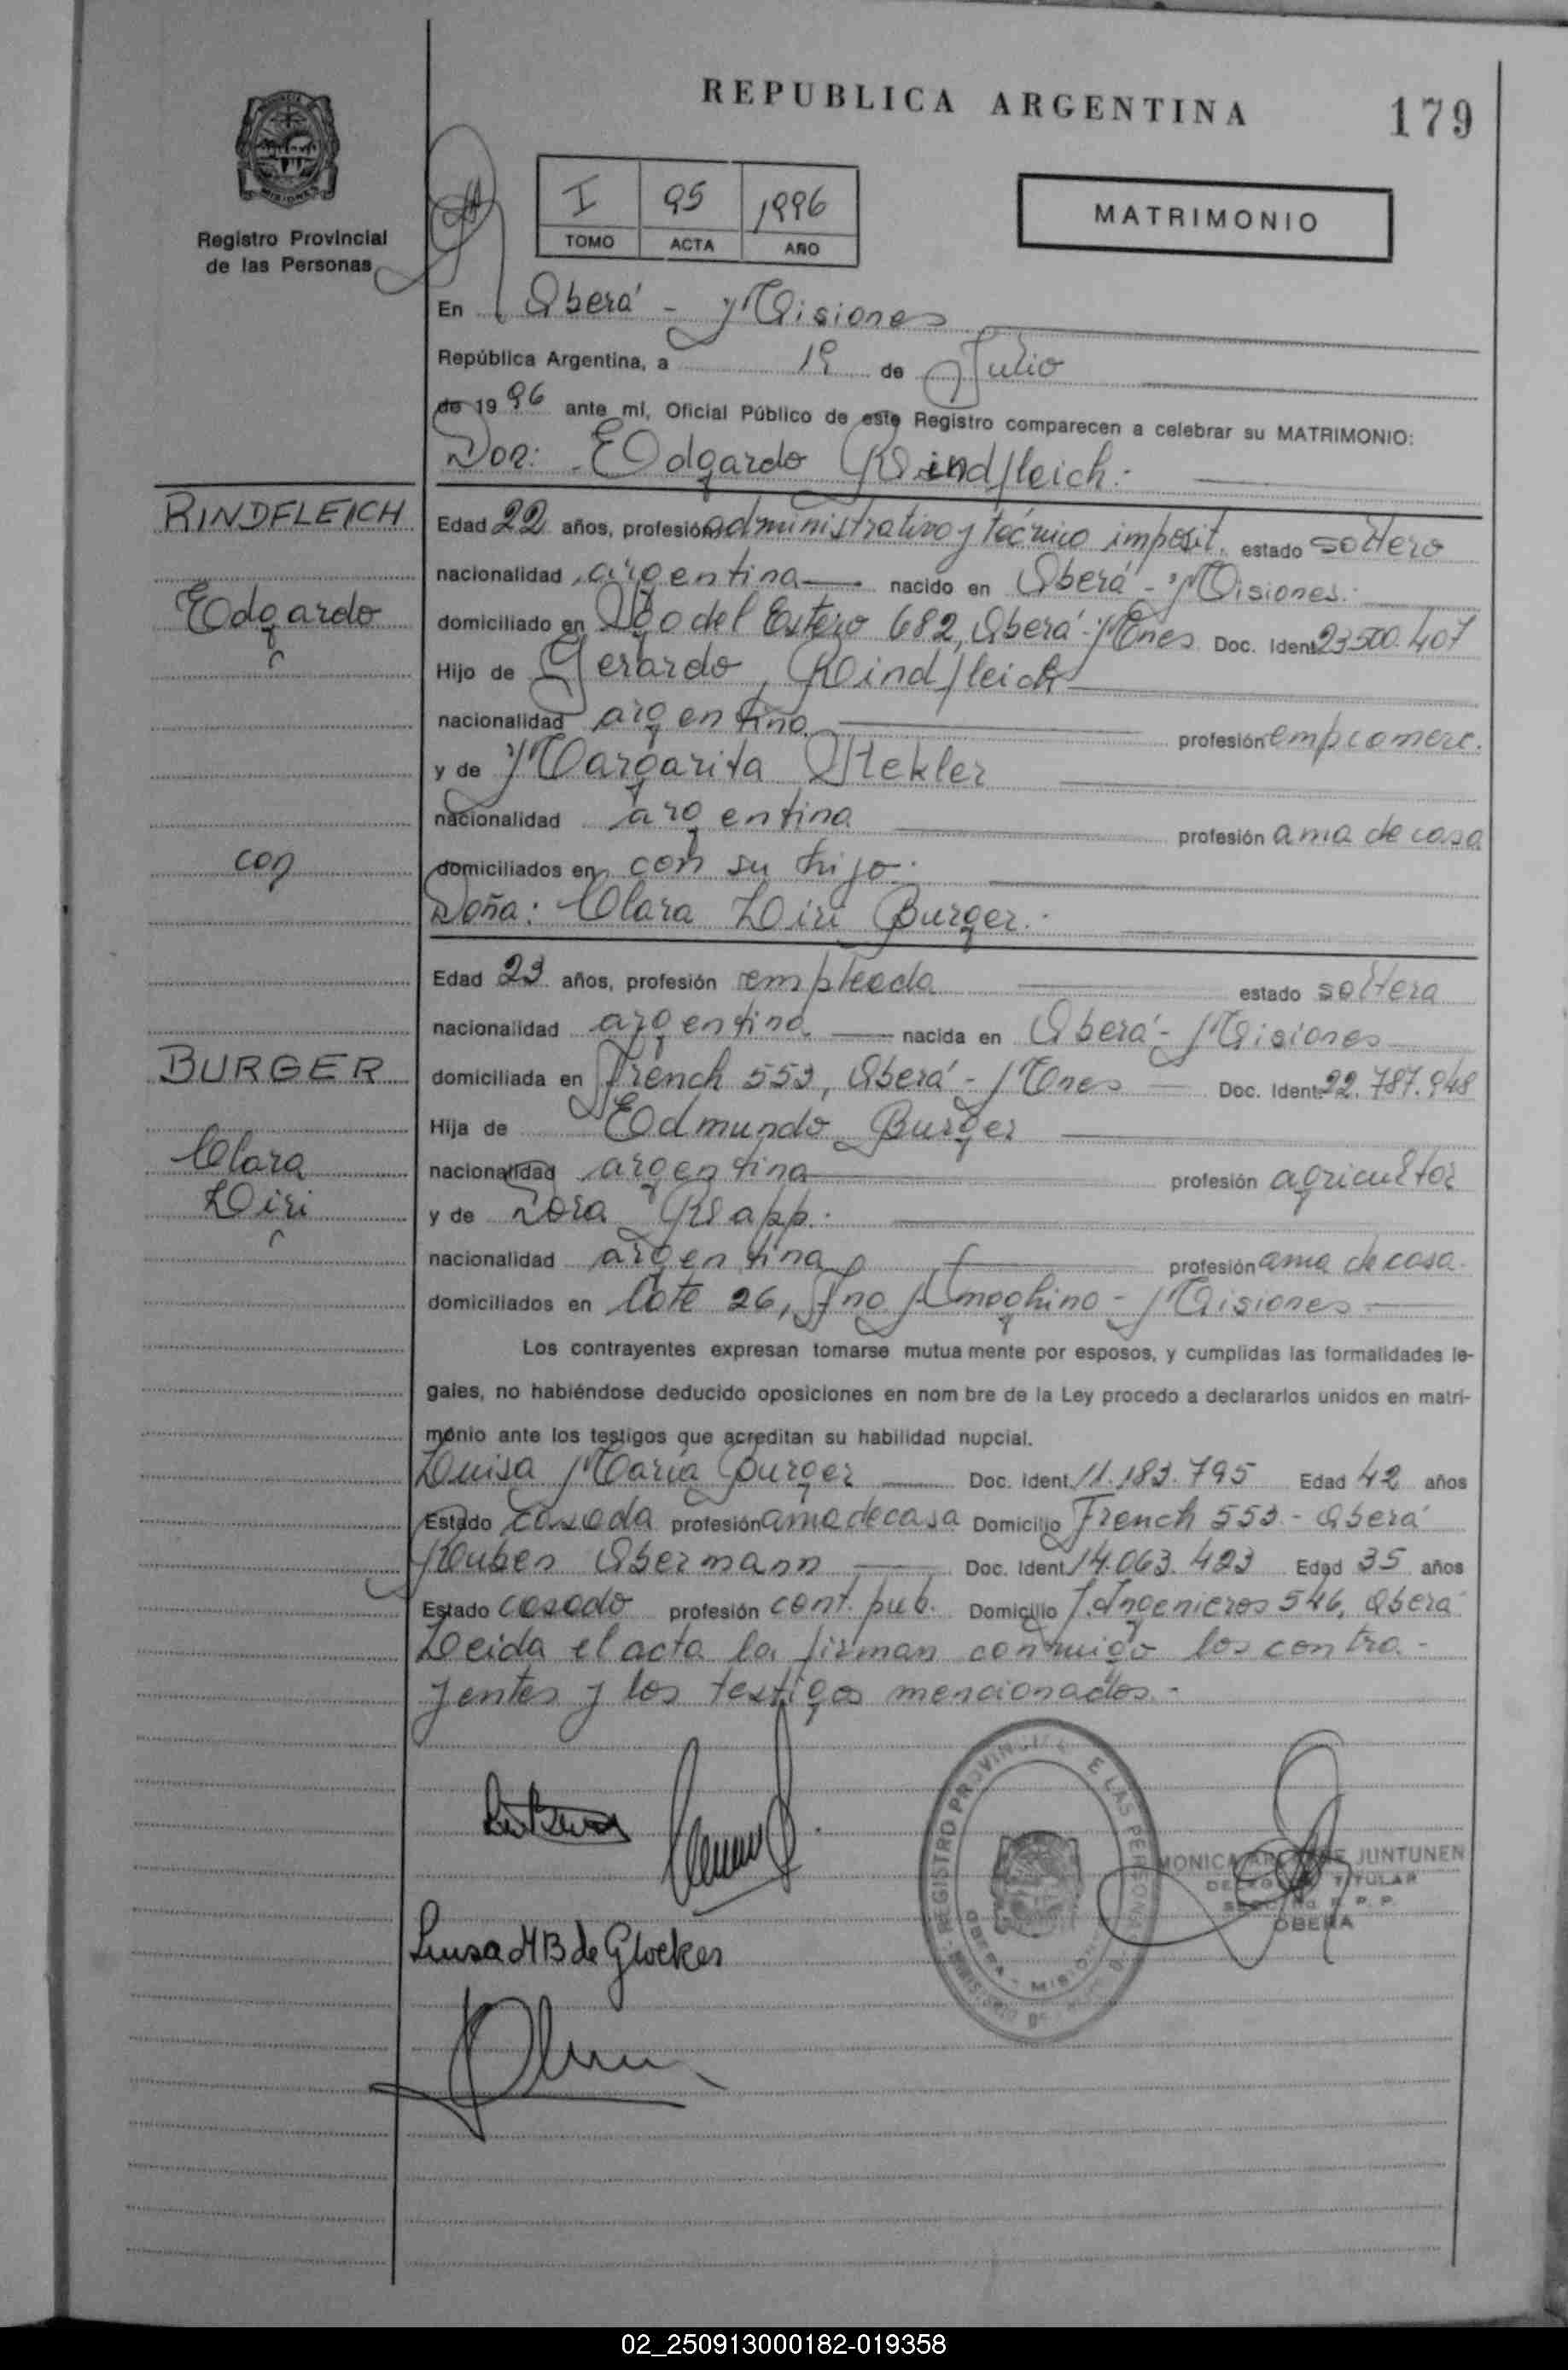 REPUBLICA ARGENTINA
179
I 95 1996
TOMO ACTA AÑO
MATRIMONIO
Registro Provincial
de las Personas
En Oberá - Misiones
República Argentina, a 19 de Julio
de 1996 ante mi, Oficial Público de este Registro comparecen a celebrar su MATRIMONIO:
Don: Edgardo Rindfleich.-
RINDFLEICH
Edgardo
con
BURGER
Clara
Liri
Edad 22 años, profesión administrativo y técnico imposit. estado soltero
nacionalidad argentina nacido en Oberá - Misiones.
domiciliado en Sgo del Estero 682, Oberá - Mnes Doc. Ident 23500.407
Hijo de Gerardo Rindfleich
nacionalidad argentina profesión emp comerc.
y de Margarita Stekler
nacionalidad argentina profesión ama de casa
domiciliados en con su hijo.
Doña: Clara Liri Burger.
Edad 23 años, profesión empleada estado soltera
nacionalidad argentina nacida en Oberá - Misiones
domiciliada en French 553, Oberá - Mnes Doc. Ident. 22.787.948
Hija de Edmundo Burger
nacionalidad argentina profesión agricultor
y de Dora Rapp.
nacionalidad argentina profesión ama de casa.
domiciliados en lote 26, Fno Ameghino - Misiones
Los contrayentes expresan tomarse mutua mente por esposos, y cumplidas las formalidades le-
gales, no habiéndose deducido oposiciones en nom bre de la Ley procedo a declararlos unidos en matri-
monio ante los testigos que acreditan su habilidad nupcial.
Luisa María Burger Doc. Ident. 11.183.795 Edad 42 años
Estado casada profesión ama de casa Domicilio French 553 - Oberá
Ruben Obermann Doc. Ident 14.063.423 Edad 35 años
Estado casado profesión cont. pub. Domicilio J. Ingenieros 546, Oberá
Leida el acta la firman conmigo los contra-
yentes y los testigos mencionados.-
REGISTRO PROVINCIAL DE LAS PERSONAS
OBERA - MISIONES
MONICA DE JUNTUNEN
DELEGADA TITULAR
R. P. P.
OBERA
Luisa M B de Glocker
02_250913000182-019358